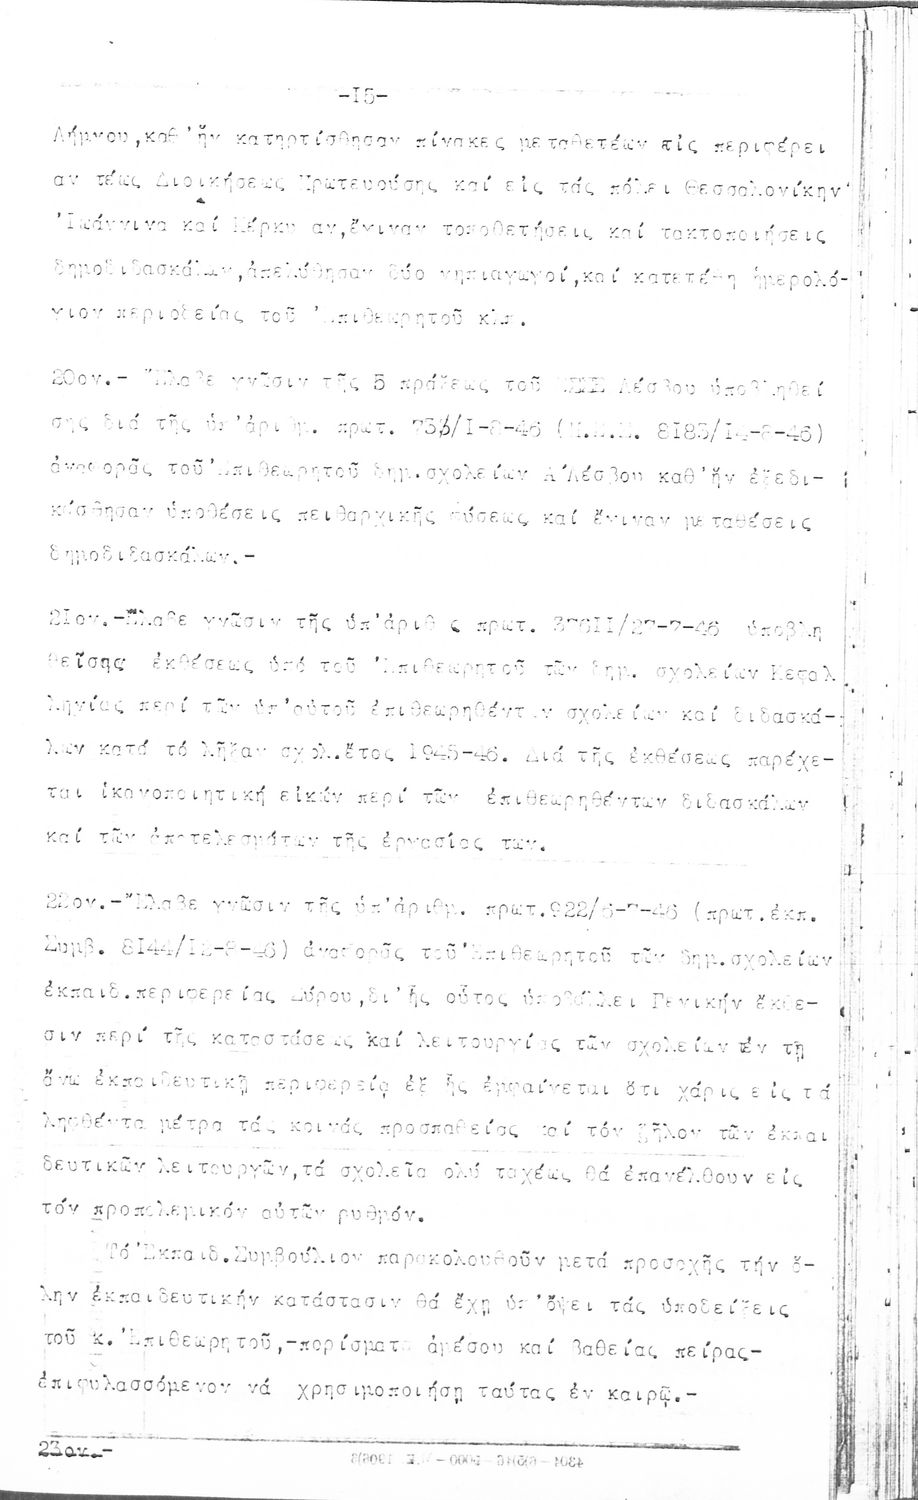 -I5-
Λήμνου,καθ'ἥν κατηρτίσθησαν πίνακες μεταθετέων εἰς περιφέρει
αν τέως Διοικήσεως Πρωτευούσης καί εἰς τάς πόλει Θεσσαλονίκην'
'Ιωάννινα καί Κέρκυ αν,ἔγιναν τοποθετήσεις καί τακτοποιήσεις
δημοδιδασκάλων,ἀπελύθησαν δύο νηπιαγωγοί,καί κατετέθη ἡμερολό-
γιον περιοδείας τοῦ 'Επιθεωρητοῦ κλπ.
20ον.- "Ελαβε γνῶσιν τῆς 5 πράξεως τοῦ Λέσβου ὑποβληθεί
σης διά τῆς ὑπ'ἀριθμ. πρωτ. /I-8-46 (Π.Ε.Σ. 8I83/I4-8-46)
ἀναφορᾶς τοῦ'Επιθεωρητοῦ δημ.σχολείων Α'Λέσβου καθ'ἥν ἐξεδι-
κάσθησαν ὑποθέσεις πειθαρχικῆς φύσεως καί ἔγιναν μεταθέσεις
δημοδιδασκάλων.-
2Ιον.-Ἔλαβε γνῶσιν τῆς ὑπ'ἀριθ ς πρωτ. 376II/27-7-46 ὑποβλη
θείσης ἐκθέσεως ὑπό τοῦ 'Επιθεωρητοῦ τῶν δημ. σχολείων Κεφαλ
ληνίας περί τῶν ὑπ'αὐτοῦ ἐπιθεωρηθέντων σχολείων καί διδασκά-
λων κατά τό λῆξαν σχολ.ἔτος 1945-46. Διά τῆς ἐκθέσεως παρέχε-
ται ἱκανοποιητική εἰκών περί τῶν ἐπιθεωρηθέντων διδασκάλων
καί τῶν ἀποτελεσμάτων τῆς ἐργασίας των.
22ον.-"Ελαβε γνῶσιν τῆς ὑπ'ἀριθμ. πρωτ.922/6-7-46 (πρωτ.ἐκπ.
Συμβ. 8I44/I2-8-46) ἀναφορᾶς τοῦ'Επιθεωρητοῦ τῶν δημ.σχολείων
ἐκπαιδ.περιφερείας Σύρου,δι'ἧς οὗτος ὑποβάλλει Γενικήν ἔκθε-
σιν περί τῆς καταστάσεως καί λειτουργίας τῶν σχολείων ἐν τῇ
ἄνω ἐκπαιδευτικῇ περιφερείᾳ ἐξ ἧς ἐμφαίνεται ὅτι χάρις εἰς τά
ληφθέντα μέτρα τάς κοινάς προσπαθείας καί τόν ζῆλον τῶν ἐκπαι
δευτικῶν λειτουργῶν,τά σχολεῖα ολύ ταχέως θά ἐπανέλθουν εἰς
τόν προπολεμικόν αὐτῶν ρυθμόν.
Τό'Εκπαιδ.Συμβούλιον παρακολουθοῦν μετά προσοχῆς τήν ὅ-
λην ἐκπαιδευτικήν κατάστασιν θά ἔχῃ ὑπ'ὄψει τάς ὑποδείξεις
τοῦ κ.'Επιθεωρητοῦ,-πορίσματα ἀμέσου καί βαθείας πείρας-
ἐπιφυλασσόμενον νά χρησιμοποιήσῃ ταύτας ἐν καιρῷ.-
23ον.-